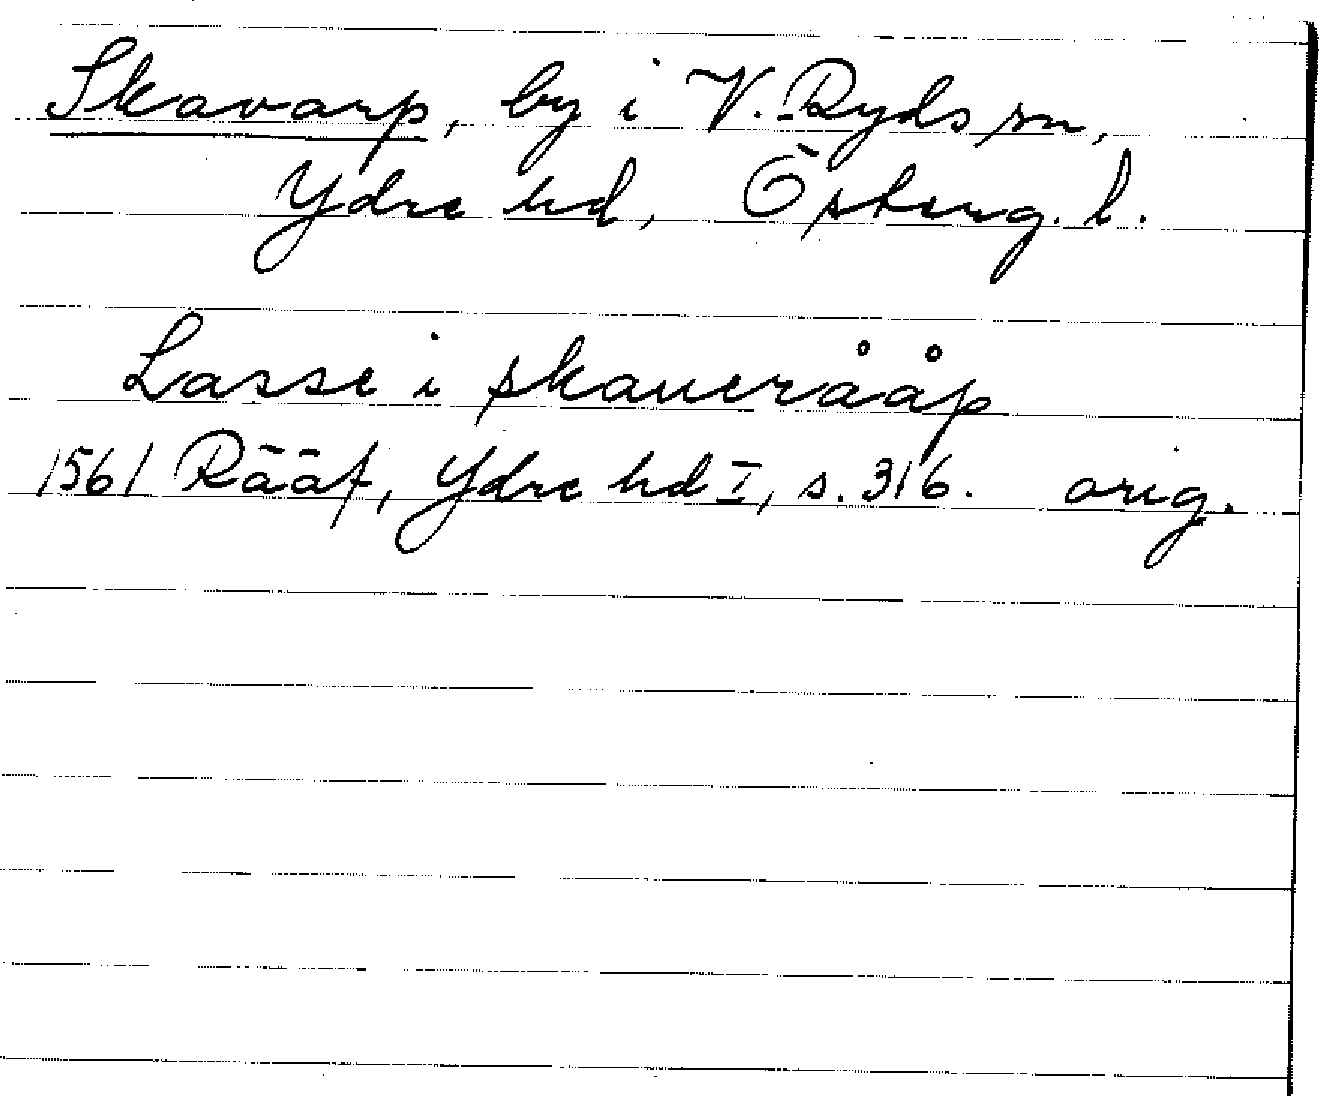 Skavarp, by i V. Ryds sn,
Ydre hd, Österg. l.
Lasse i skaueråå̊p
1561 Rääf, Ydre hd I, s. 316. orig.